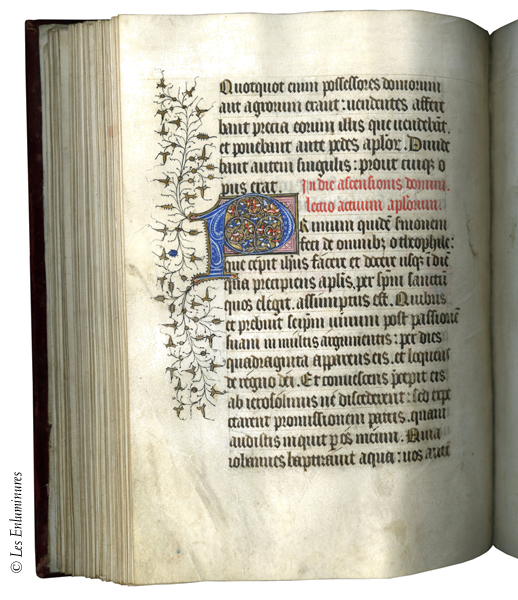 Quotquot enim possessores domorum
aut agrorum erant: uendentes affere
bant precia eorum illis que uendebāt.
et ponebant ante pedes aplor̄. Diuide
bant autem singulis: prout cuiq; o
pus erat. In die ascensionis domini.
lectio actuum aplorum.
Rimum quidē sermonem
feci de omnibz o theophile:
que cepit ih̄us facere et docere usq; ī diē
qua precipiens aplīs. per sp̄m sanctū
quos elegit. assumptus est. Quibus
et prebuit seip̄m uiuum post passionē
suam in multis argumentis: per dies
quadraginta apparens eis. et loquens
de regno dei. Et conuescens p̄cepit eis
ab ierosolimis ne discederent: sed expe
ctarent promissionem patris. quam
audistis inquit p̄ os meum. Quia
iohannes baptizauit aqua: uos autē
© Les Enluminures